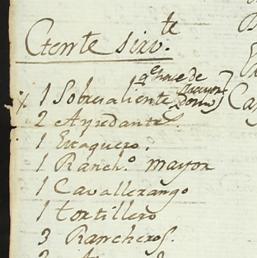 Gente sirv.te
1 Sobresaliente q.e hace de
2 Ayudantes.
1 Estaquero.
1 Ranch.o mayor
1 Cavallerango
1 tortillero
3 Rancheros.